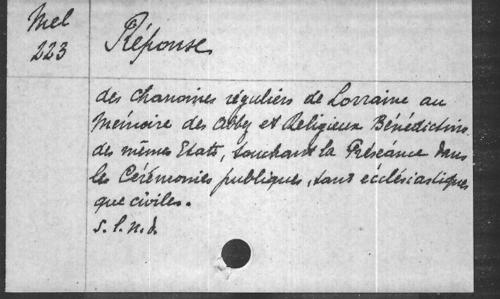 Mel
223
Réponse
des Chanoines réguliers de Lorraine au
Mémoire des Abby et Religieux Bénédictins
des mêmes Etats, touchant la Préséance dans
les Cérémonies publiques, tant ecclésiastiques
que civiles.
s. l. n. d.